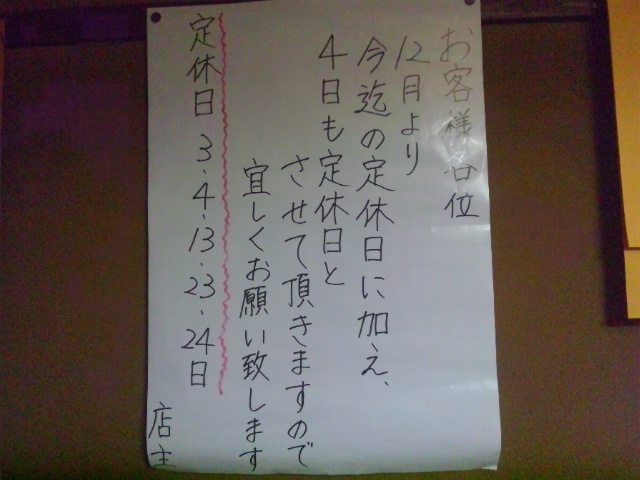 お客様各位
12月より
今迄の定休日に加え、
4日も定休日と
させて頂きますので
宜しくお願い致します
定休日 3.4.13.23.24日
店主